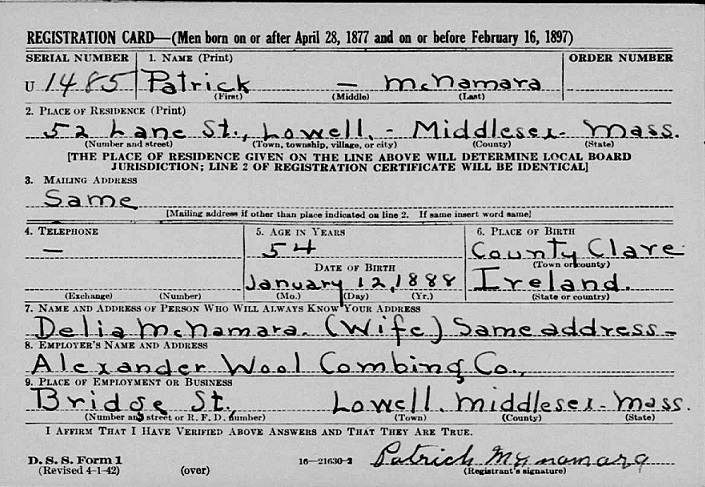 REGISTRATION CARD—(Men born on or after April 28, 1877 and on or before February 16, 1897)
SERIAL NUMBER 1. NAME (Print) ORDER NUMBER
U 1485 Patrick — McNamara
(First) (Middle) (Last)
2. PLACE OF RESIDENCE (Print)
52 Lane St., Lowell, - Middlesex - Mass.
(Number and street) (Town, township, village, or city) (County) (State)
[THE PLACE OF RESIDENCE GIVEN ON THE LINE ABOVE WILL DETERMINE LOCAL BOARD
JURISDICTION; LINE 2 OF REGISTRATION CERTIFICATE WILL BE IDENTICAL]
3. MAILING ADDRESS
Same
[Mailing address if other than place indicated on line 2. If same insert word same]
4. TELEPHONE 5. AGE IN YEARS 6. PLACE OF BIRTH
— 54 County Clare
DATE OF BIRTH (Town or county)
January 12, 1888 Ireland.
(Exchange) (Number) (Mo.) (Day) (Yr.) (State or country)
7. NAME AND ADDRESS OF PERSON WHO WILL ALWAYS KNOW YOUR ADDRESS
Delia McNamara. (Wife) Same address -
8. EMPLOYER'S NAME AND ADDRESS
Alexander Wool Combing Co.,
9. PLACE OF EMPLOYMENT OR BUSINESS
Bridge St., Lowell, Middlesex - Mass.
(Number and street or R. F. D. number) (Town) (County) (State)
I AFFIRM THAT I HAVE VERIFIED ABOVE ANSWERS AND THAT THEY ARE TRUE.
D. S. S. Form 1
(Revised 4-1-42) (over) 16—21630-2 Patrick McNamara
(Registrant's signature)